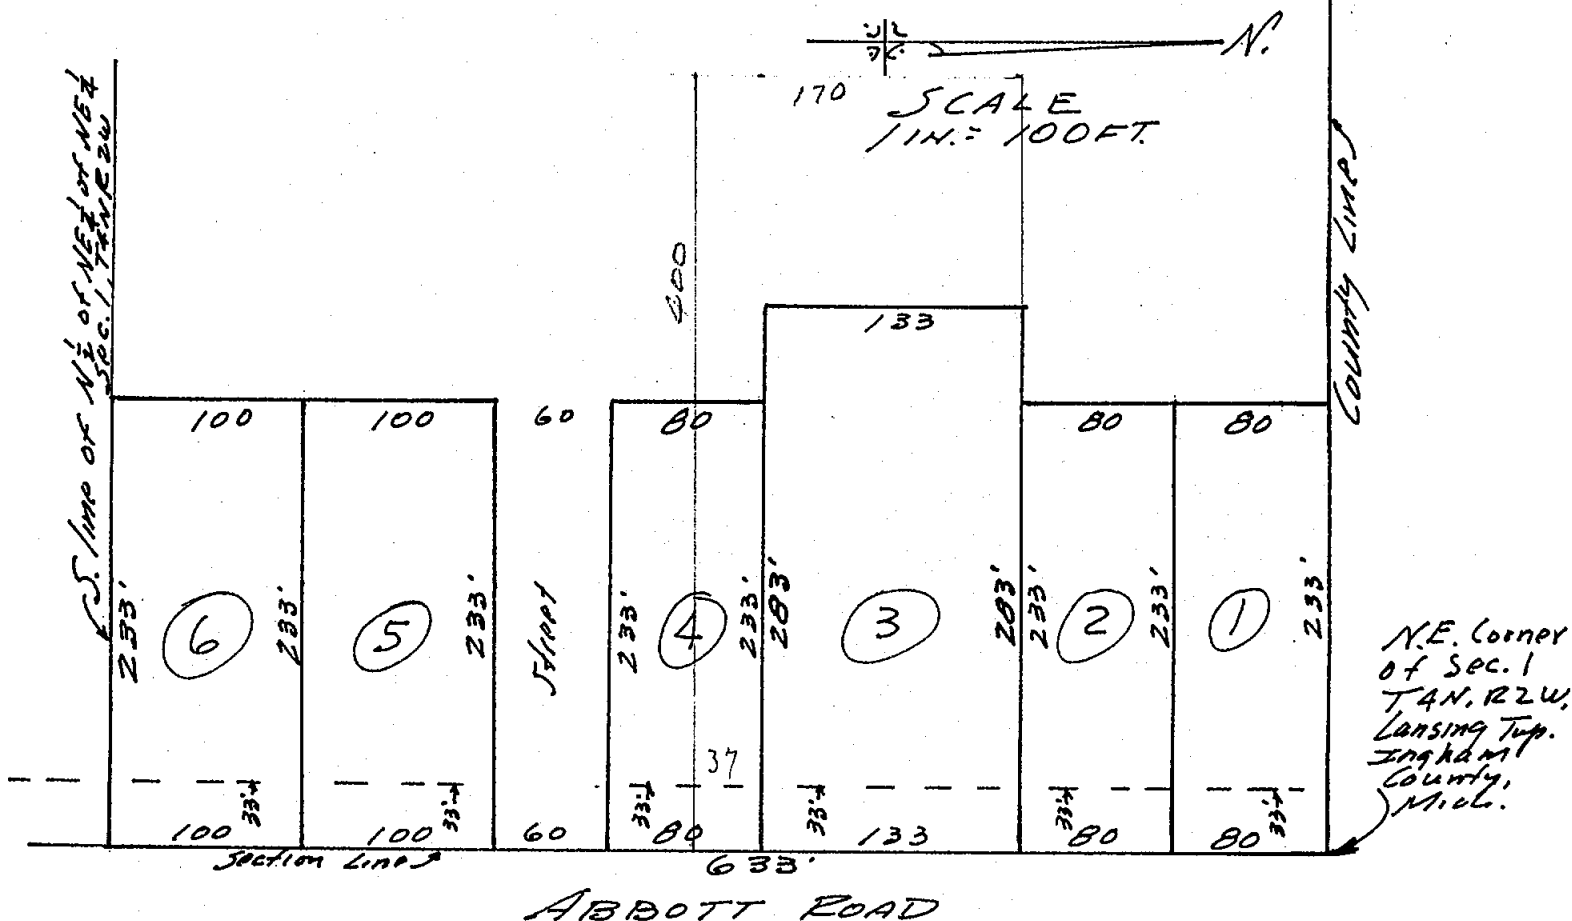 N.
170
SCALE
1 IN. = 100 FT.
S. line of N½ of NE¼ of NE¼
Sec. 1, T4N R2W
County Line
400
133
100 100 60 80 80 80
233' 6 233' 5 233' Street 233' 4 233' 283' 3 283' 233' 2 233' 1 233'
N.E. Corner
of Sec. 1
T4N. R2W.
Lansing Twp.
Ingham
County,
Mich.
37
33' 33' 33' 33' 33' 33'
100 100 60 80 133 80 80
Section Line
633'
ABBOTT ROAD